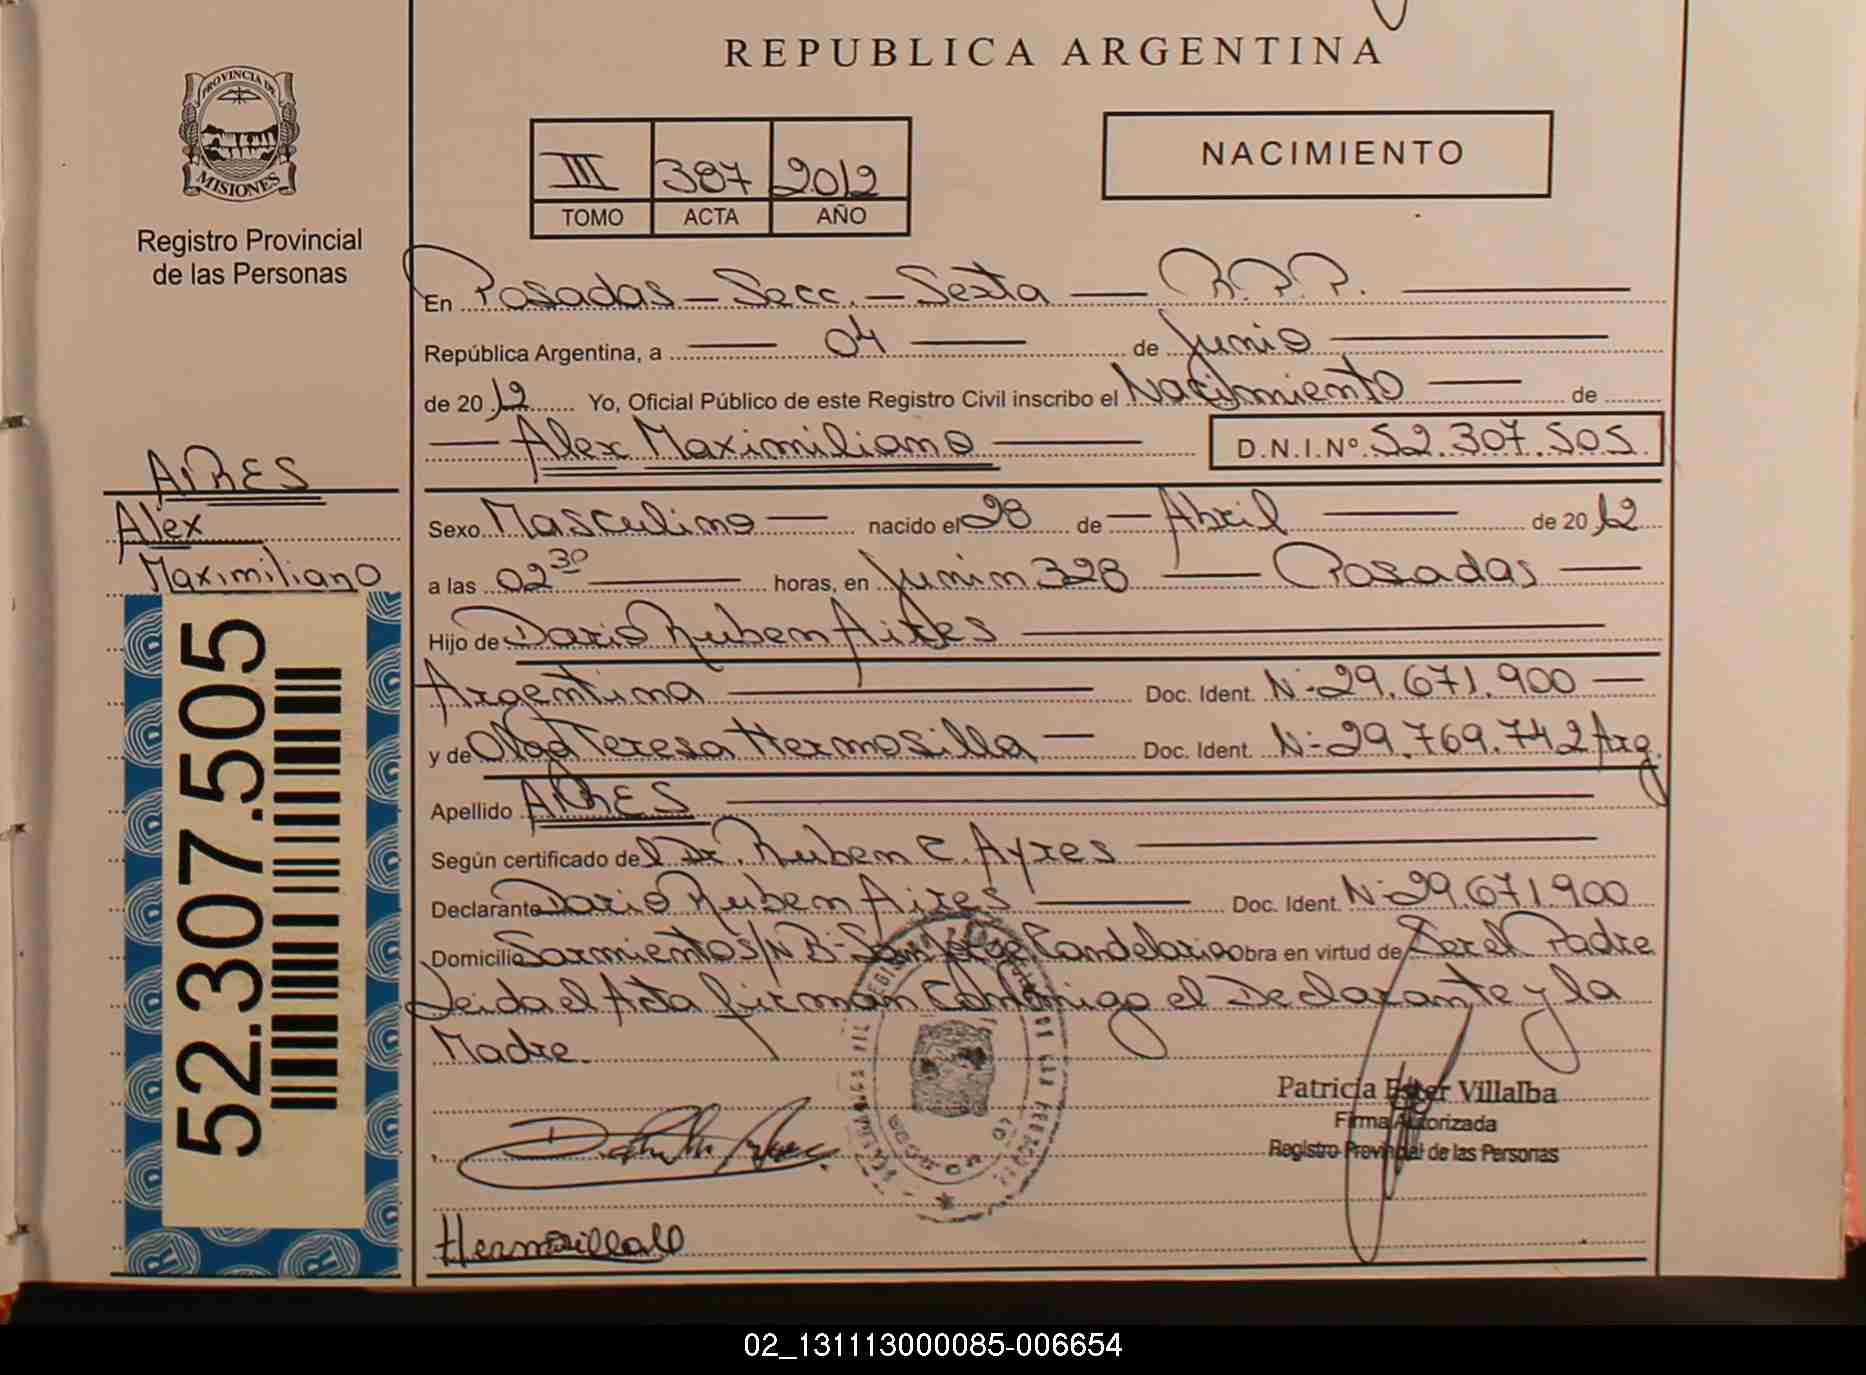 REPUBLICA ARGENTINA
PROVINCIA DE
MISIONES
Registro Provincial
de las Personas
III 387 2012
TOMO ACTA AÑO
NACIMIENTO
En Posadas - Secc. - Sexta — R.P.P.
República Argentina, a — 04 — de Junio
de 2012 Yo, Oficial Público de este Registro Civil inscribo el Nacimiento — de
— Alex Maximiliano — D.N.I.Nº 52.307.505.
AIRES
Alex
Maximiliano
52.307.505
Sexo Masculino — nacido el 28 de — Abril — de 2012
a las 02 30 — horas, en Junin 328 — Posadas —
Hijo de Dario Ruben Aires
Argentina — Doc. Ident. Nº 29.671.900 —
y de Olga Teresa Hermosilla — Doc. Ident. Nº 29.769.742 Arg.
Apellido AIRES
Según certificado del Dr. Ruben C. Ayres
Declarante Dario Ruben Aires — Doc. Ident. Nº 29.671.900
Domicilio Sarmiento S/N Bº San Jose Candelaria Obra en virtud de Ser el Padre
Leida el Acta firman Conmigo el Declarante y la
Madre.
Patricia Ester Villalba
Firma Autorizada
Registro Provincial de las Personas
Hermosilla
02_131113000085-006654